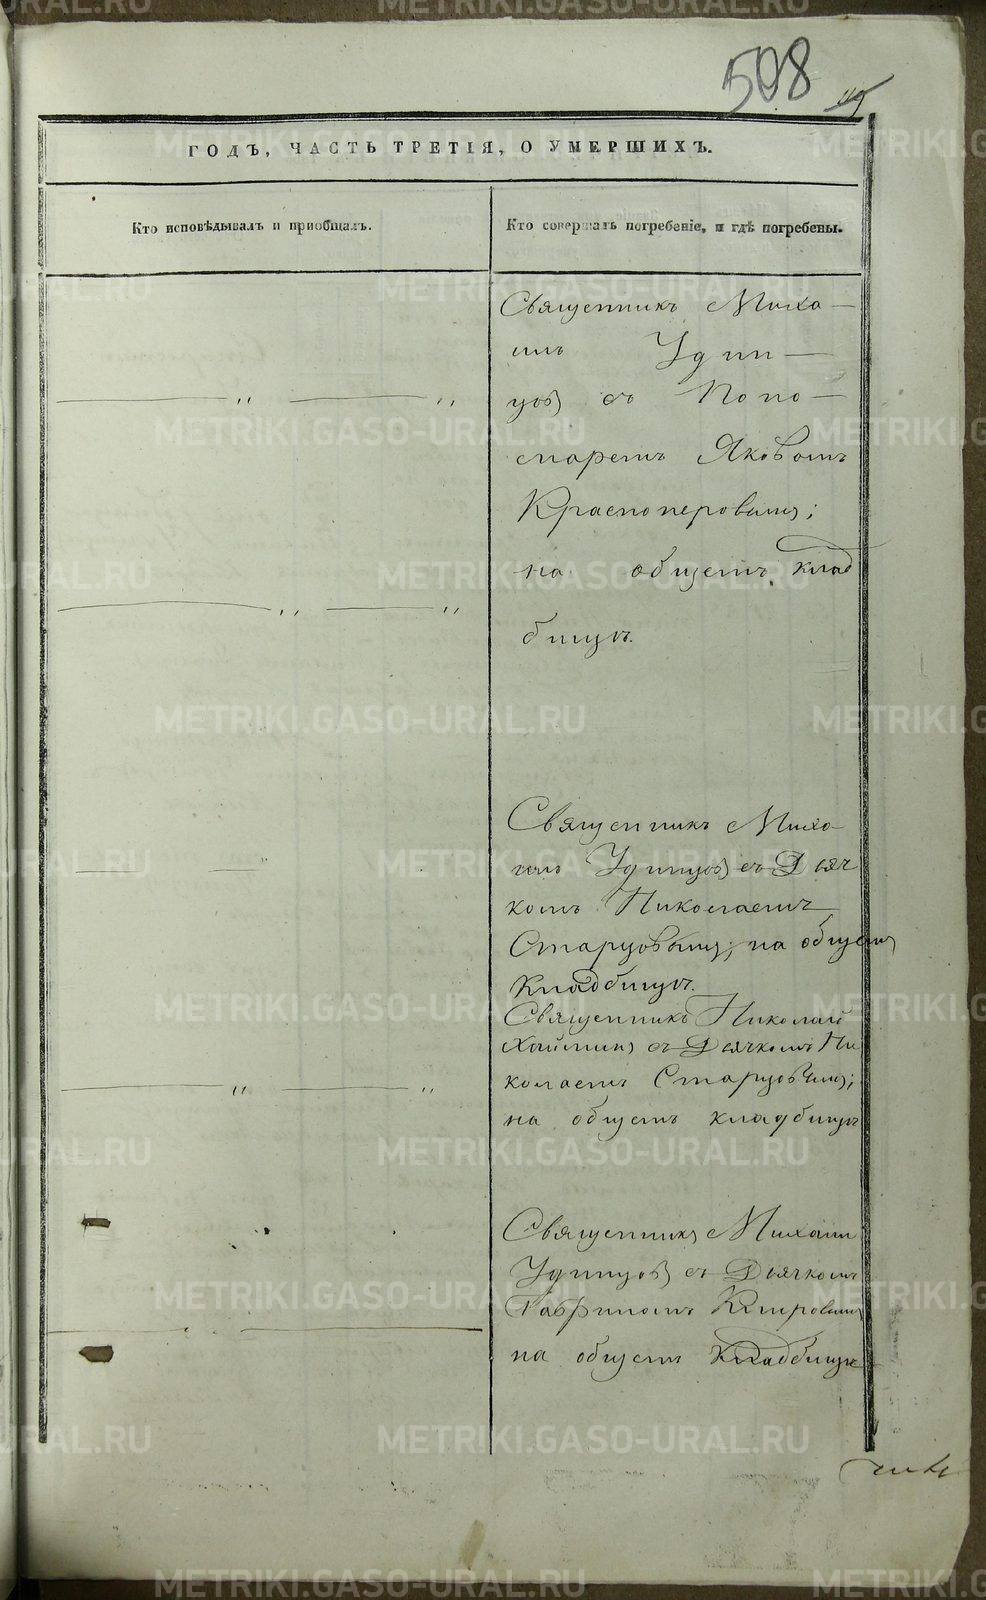 508
ГОДЪ, ЧАСТЬ ТРЕТІЯ, О УМЕРШИХЪ.
Кто исповѣдывалъ и приобщалъ.
Кто совершалъ погребеніе, и гдѣ погребены.
Священникъ Миха-
илъ Удин-
цовъ съ Поно-
маремъ Яковомъ
Красноперовымъ;
на общемъ клад
бищѣ.
Священникъ Миха-
илъ Удинцовъ съ Дьяч
комъ Николаемъ
Старцовымъ; на общемъ
кладбищѣ.
Священникъ Николай
съ Дьячкомъ Ни
колаемъ Старцовымъ;
на общемъ кладбищѣ
Священникъ Михаилъ
Удинцовъ съ Дьячкомъ
Гавриломъ Кировымъ
на общемъ кладбищѣ
METRIKI.GASO-URAL.RU